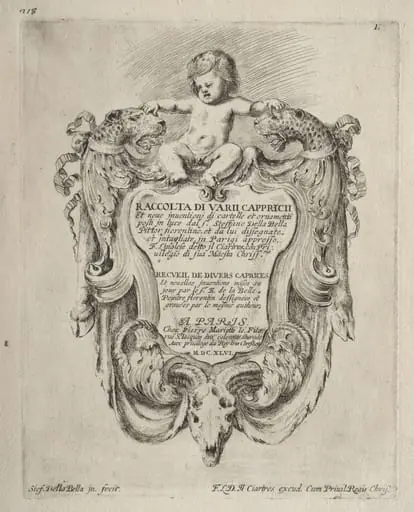 218
1.
RACCOLTA DI VARII CAPPRICII
Et noue inuentioni di cartelle et ornamenti
posti in luce dal S. Steffano Della Bella
Pittor fiorentino, et da lui disegnate
et intagliate in Parigi appresso
F. L. detto il Ciartres, con pri-
uilegio di sua Maesta Christ.
RECVEIL DE DIVERS CAPRICES
Et nouelles inuentions mises au
jour par le S. E. de la Belle
Peintre florentin desseignees et
grauees par le mesme autheur,
A PARIS
Chez Pierre Mariette le Fils
rue S. Iacques aux
Auec priuilege du Roy tres Chrestien
M. DC. XLVI.
Stef. Della Bella in. fecit.
F. L. D. Ciartres excud. Cum Priuil. Regis Christ.